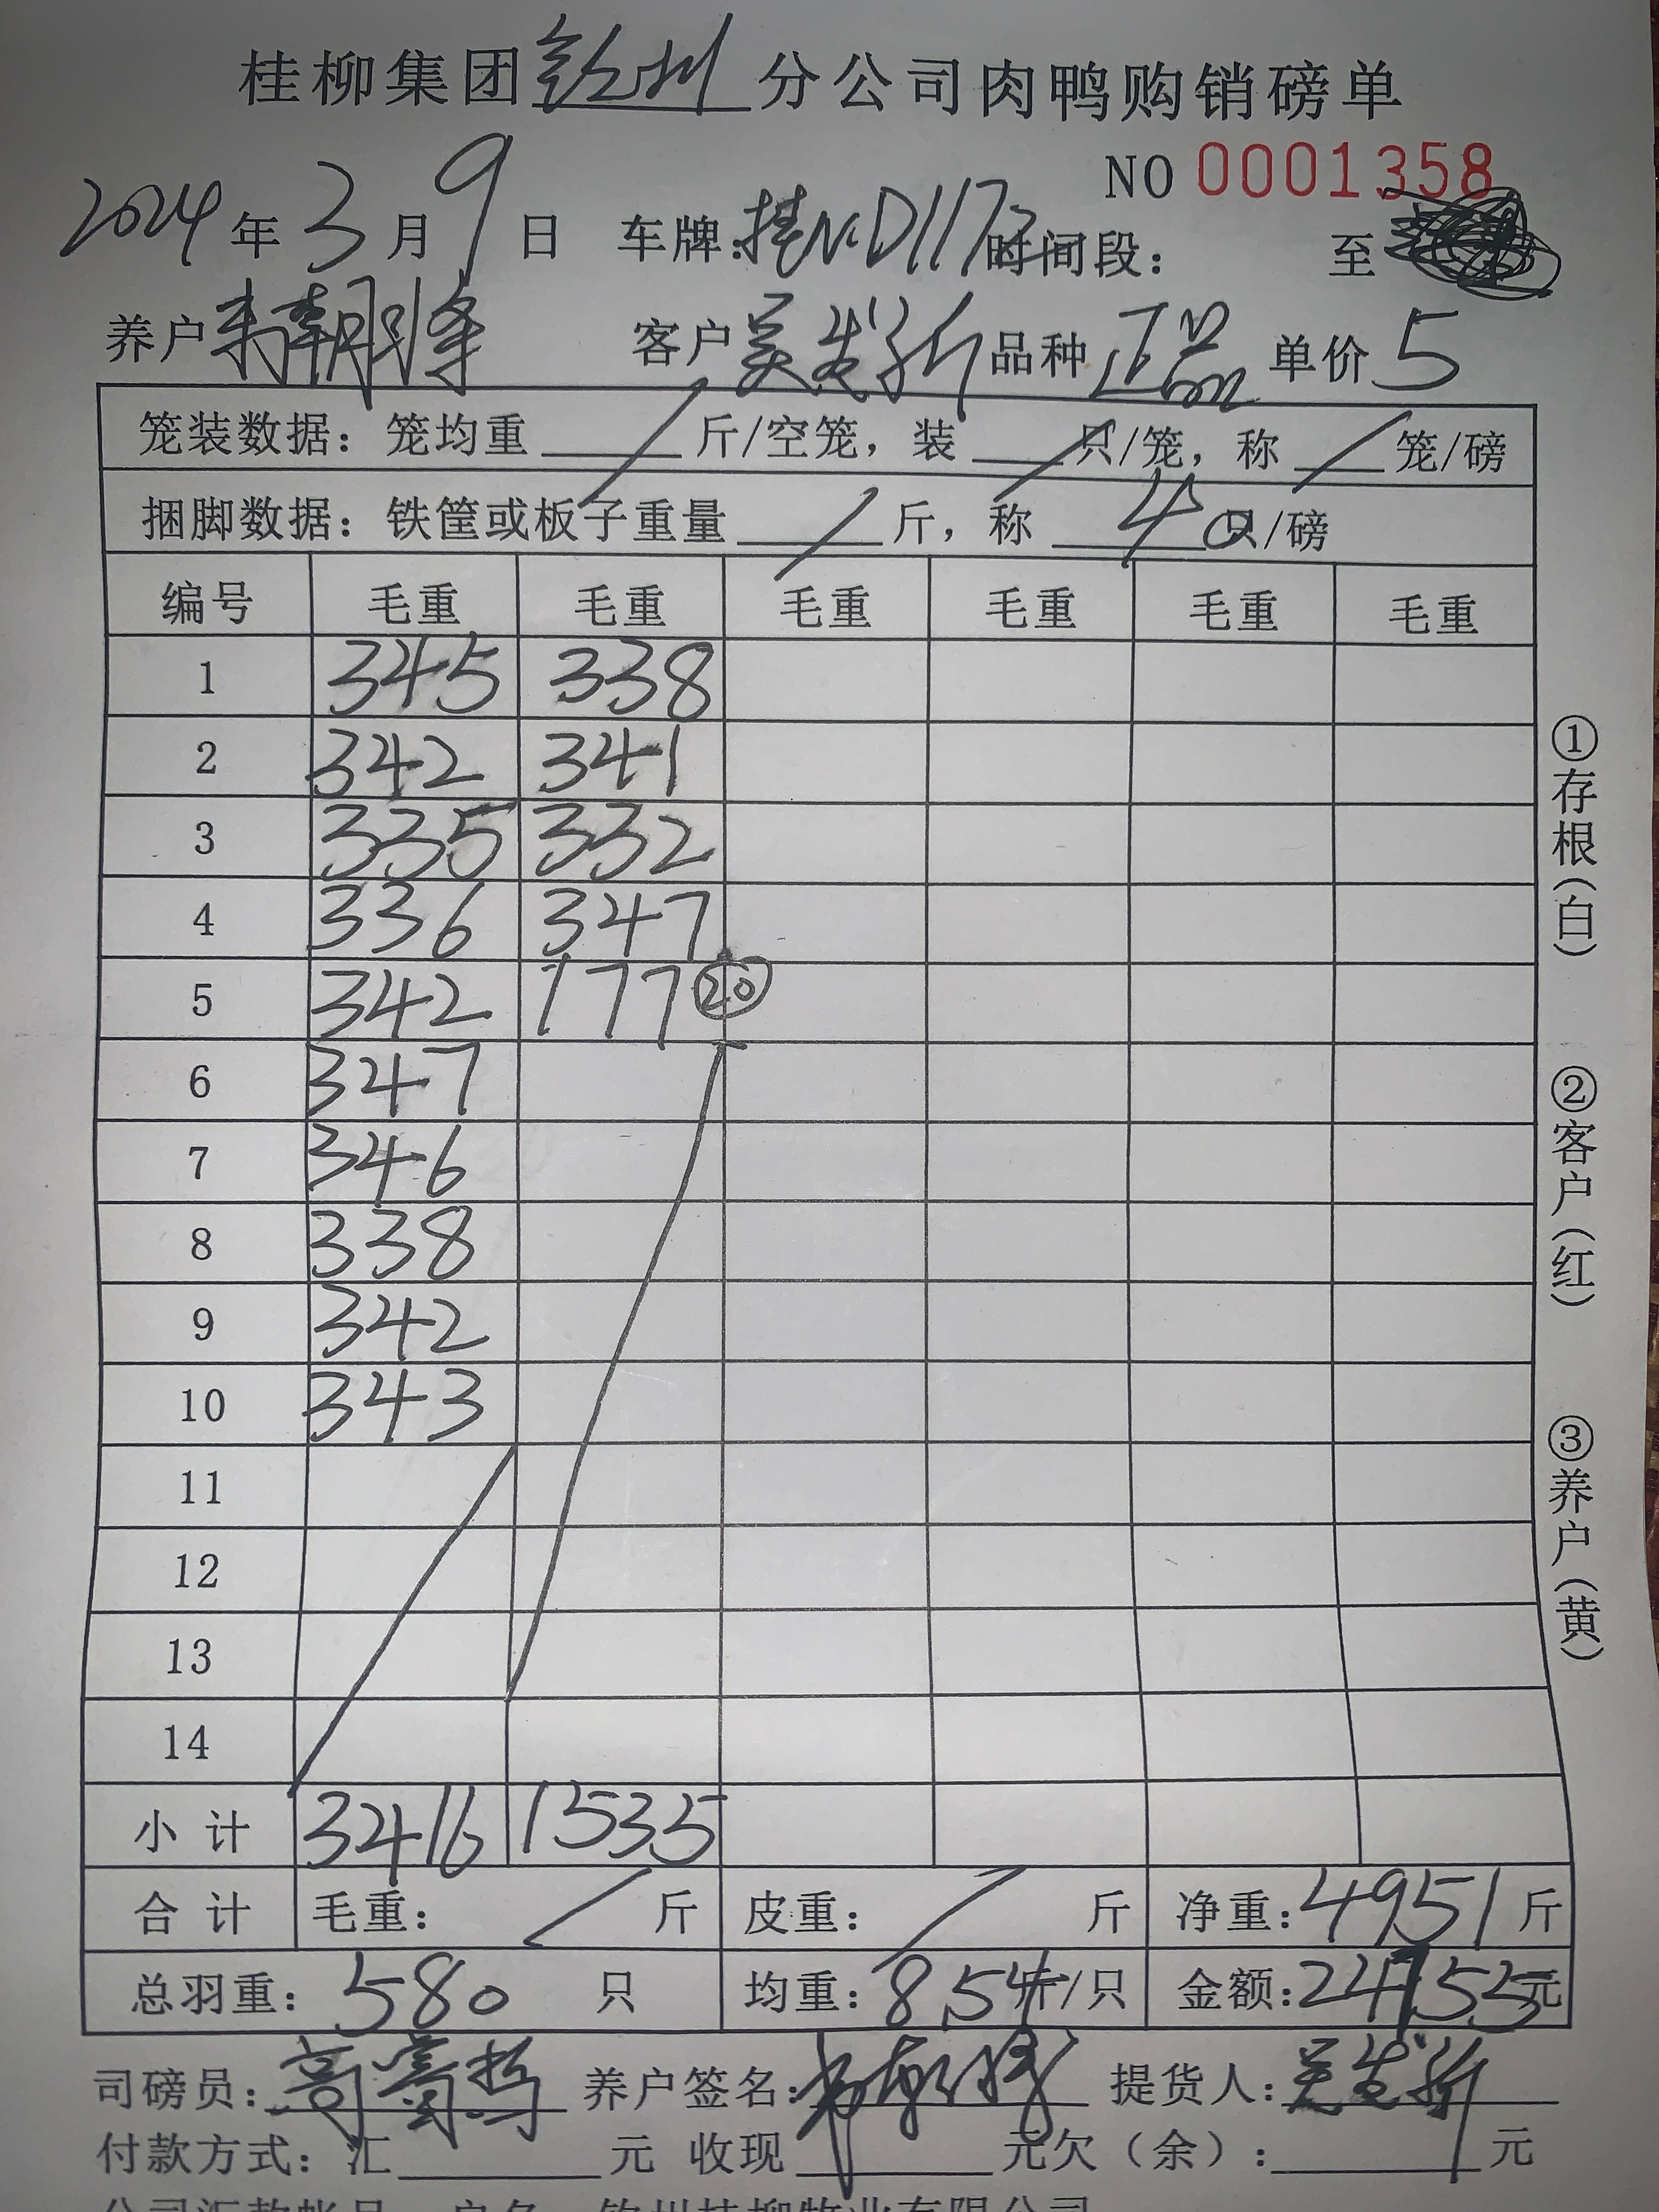 桂柳集团钦州分公司肉鸭购销磅单
NO 0001358
2024年3月9日 车牌:桂NCD1173 时间段: 至
养户 朝峰 客户 吴发新 品种 正品 单价 5
笼装数据: 笼均重 / 斤/空笼, 装 / 只/笼, 称 / 笼/磅
捆脚数据: 铁筐或板子重量 / 斤, 称 40 只/磅
编号 毛重 毛重 毛重 毛重 毛重 毛重
1 345 338
2 342 341
3 335 332
4 336 347
5 342 177 ⑳
6 347
7 346
8 338
9 342
10 343
11
12
13
14
小计 3416 1535
合计 毛重: / 斤 皮重: / 斤 净重:4951斤
总羽重: 580 只 均重:8.54斤/只 金额:24755元
司磅员: 高 养户签名: 提货人:吴发新
付款方式: 汇 元 收现 元欠(余): 元
①存根(白)
②客户(红)
③养户(黄)